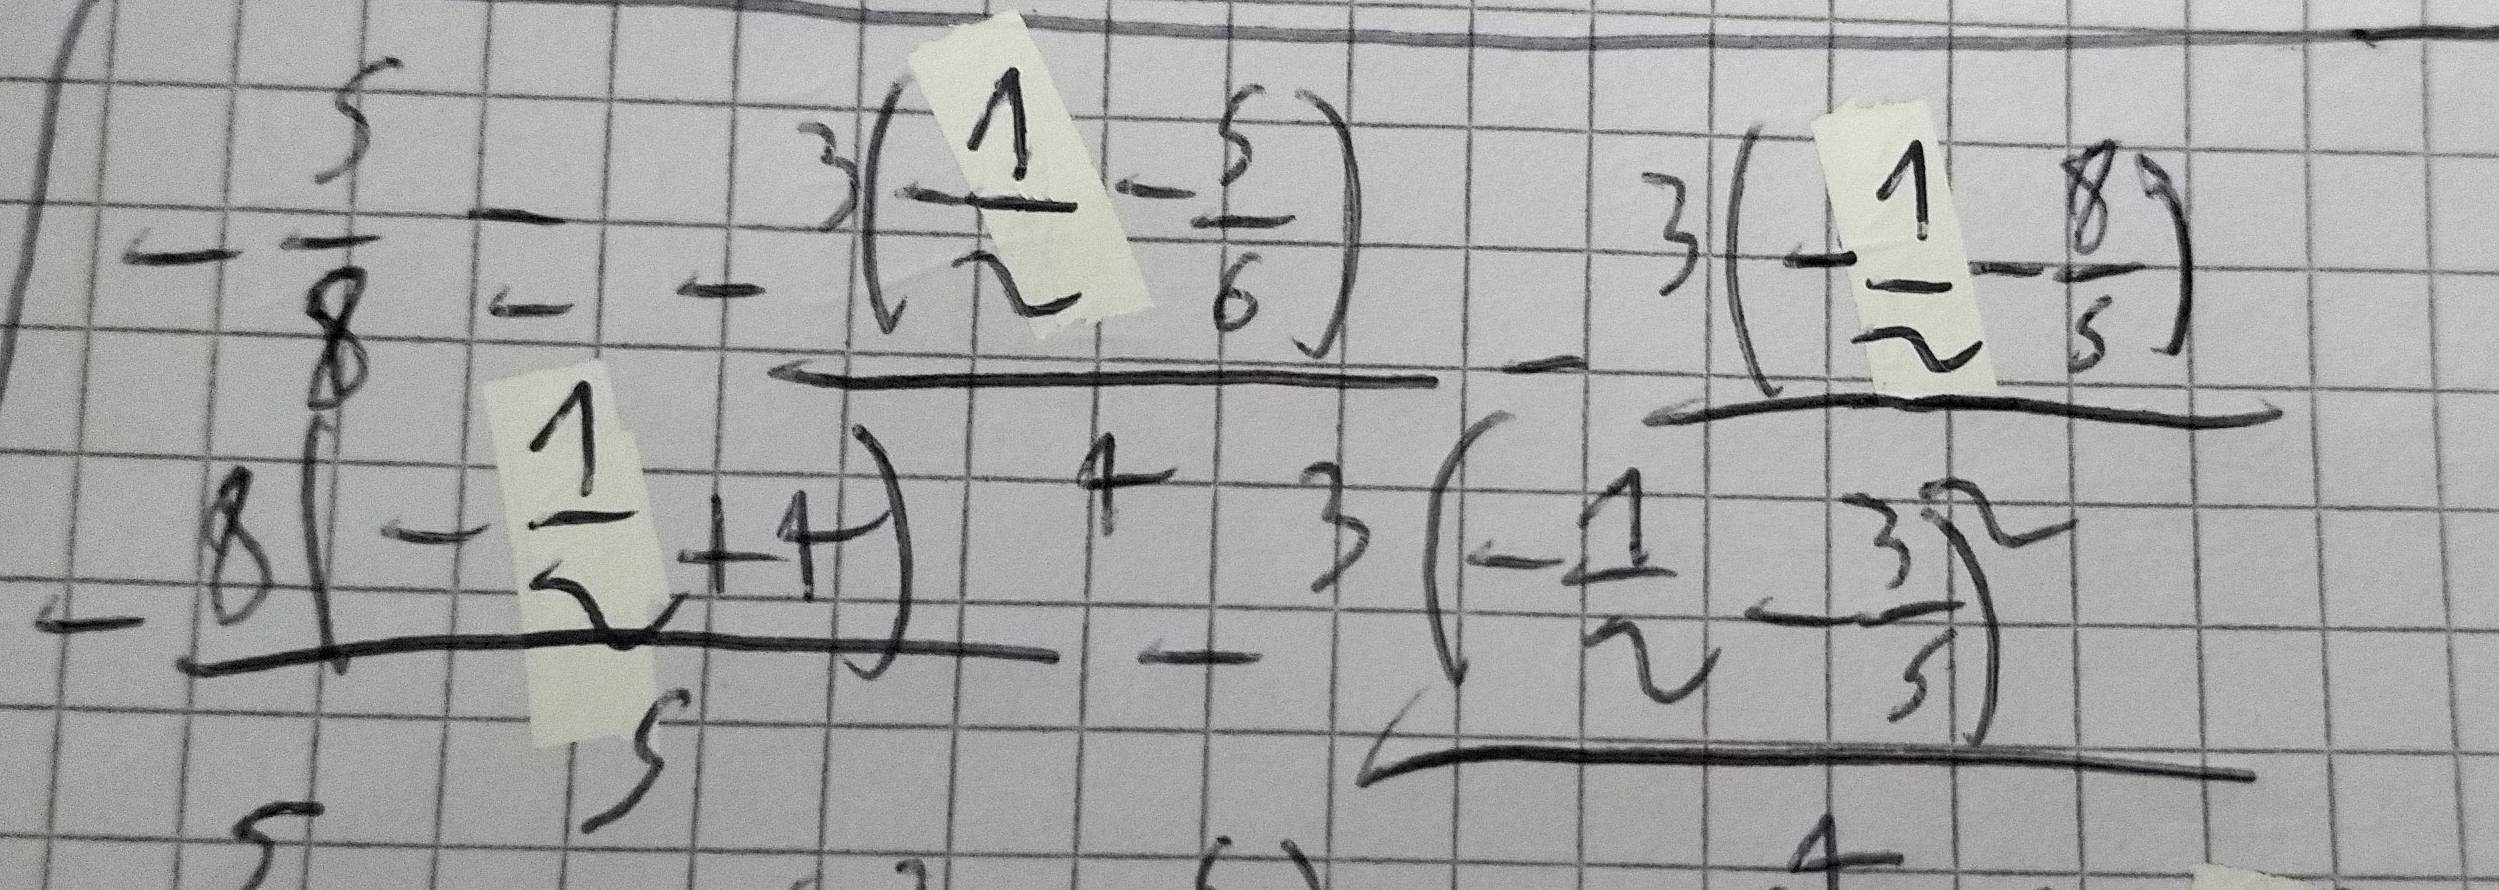 -5/8 = -3(-1/2 - 5/6)/4 - 3(-1/2 - 8/5)
-8(-1/2 + 4)/5 - 3(-1/2 - 3/5)²/4
5